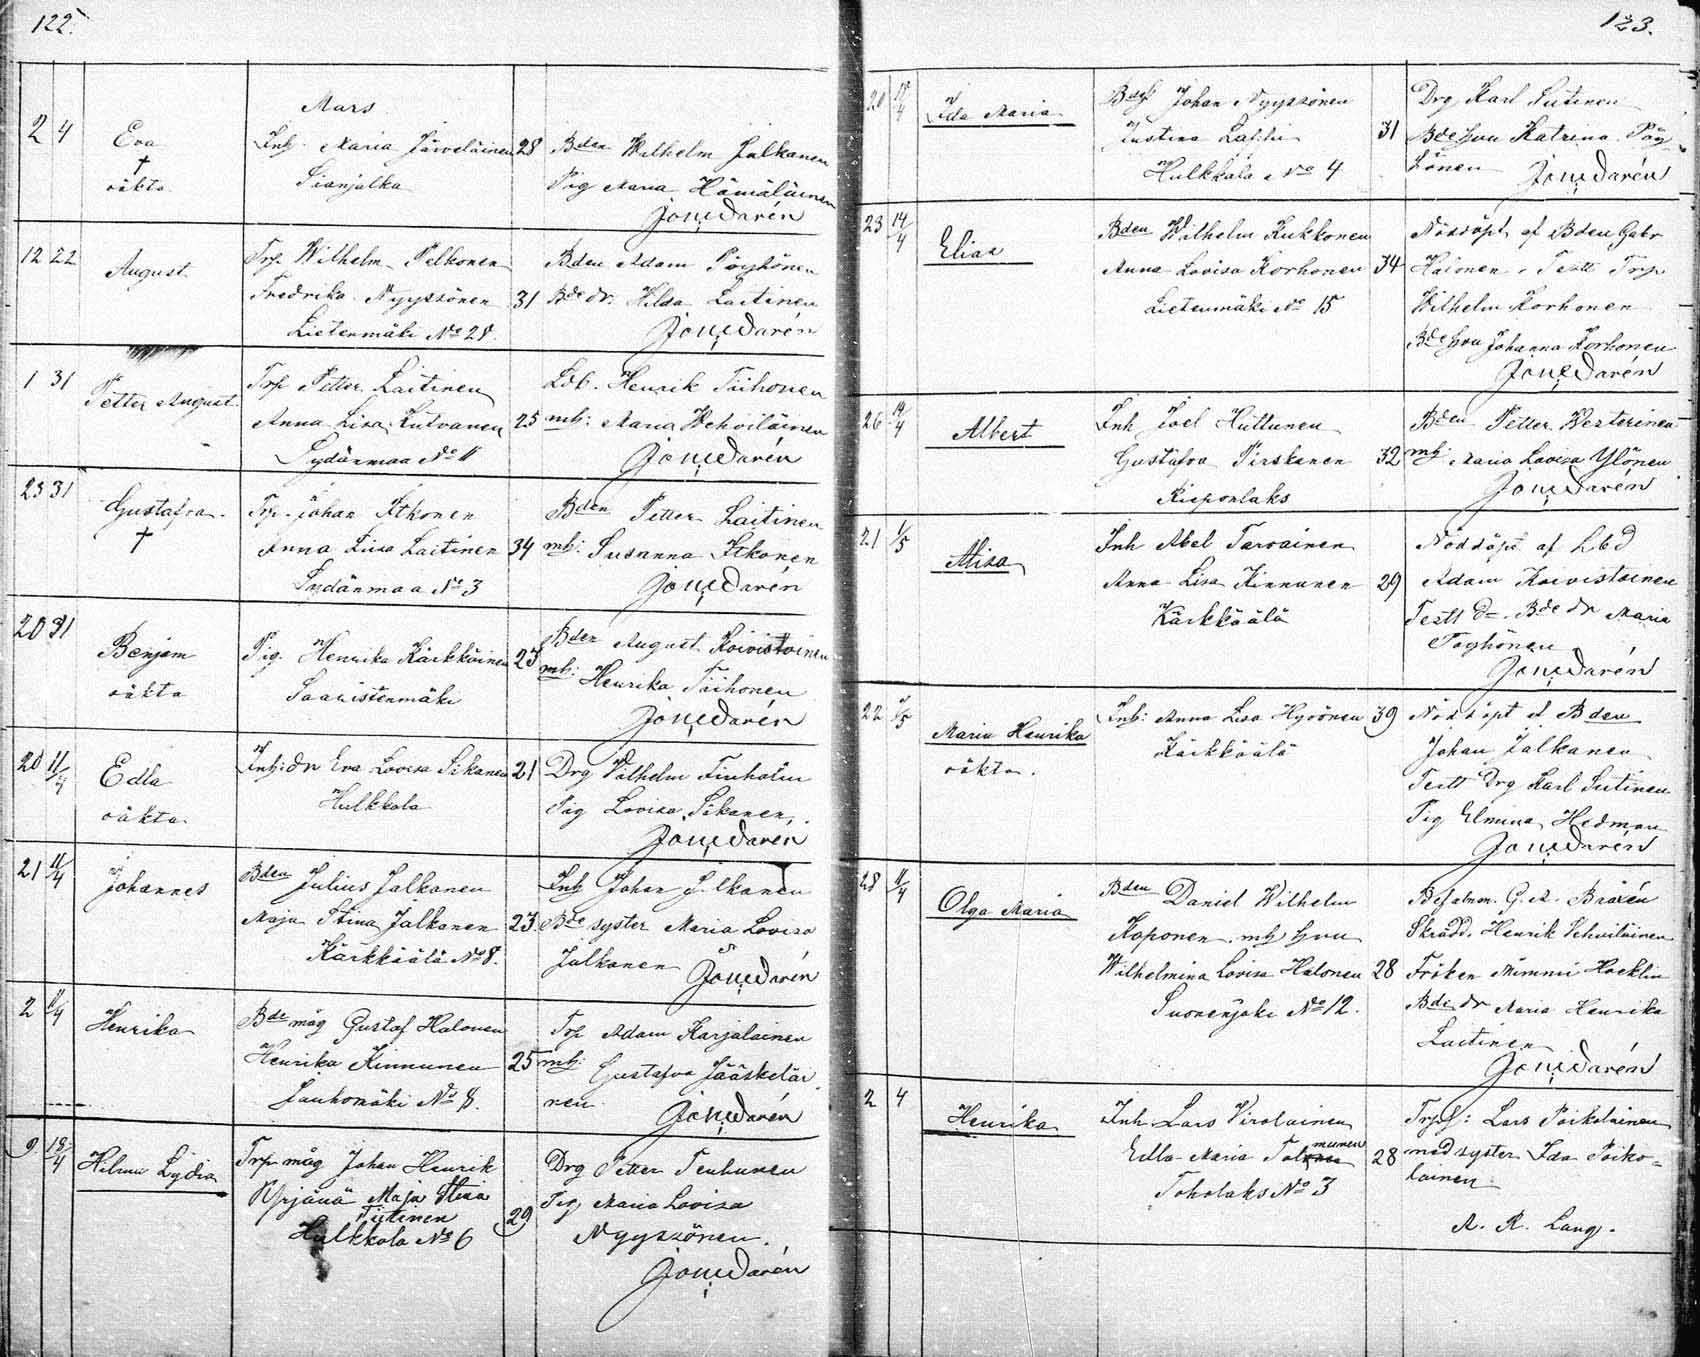 122.
Mars
2 4 Eva Inh. Maria Järveläinen 28 Bden Wilhelm Jalkanen
†
oäkta Sianjalka Pig Maria Hämäläinen
12 22 August Trp Wilhelm Pelkonen Bden Adam Pöyhönen
Fredrika Nyyssönen 31 Bde dr. Hilda Laitinen
Lietenmäki No 28.
1 31 Petter August Trp Petter Laitinen Lbf. Henrik Tiihonen
Anna Lisa Kutvonen 25 mh: Maria Wehviläinen
Sydänmaa No 11
23 31 Gustafva Trp. Johan Itkonen Bden Petter Laitinen
†
Anna Lisa Laitinen 34 mh: Susanna Itkonen
Sydänmaa No 3
20 31 Benjam Pig. Henrika Kärkkäinen 23 Bden August Koivistoinen
oäkta Saaristenmäki mh: Henrika Tiihonen
20 11/4 Edla Inh: dr Eva Lovisa Sikanen 21 Drg Wilhelm Finholm
oäkta Hulkkola Pig Lovisa Sikanen,
21 11/4 Johannes Bden Julius Jalkanen Inh Johan Jalkanen
Maja Stina Jalkanen 23. Bde syster Maria Lovisa
Kärkkäälä No 8. Jalkanen
2 11/4 Henrika Bde måg Gustaf Halonen Trp Adam Karjalainen
Henrika Kinnunen 25 mh: Gustafva Jääskeläi
Jauhomäki No 8. nen
9 18/4 Hilma Lydia Trp måg Johan Henrik Drg Petter Tenhunen
Maja Stina Pig Maria Lovisa
Tiitinen 29
Hulkkola No 6 Nyyssönen.
123.
20 Ida Maria Johan Nyyssönen Drg Karl Sutinen
Justina Lappi 31 Bde hru Katrina Pöy
Hulkkola No 4 hönen
23 14/4 Elias Bden Wilhelm Kukkonen Nöddöpt af Bden Gabr
Anna Lovisa Korhonen 34 Halonen. Testt Trp
Lietenmäki No 15 Wilhelm Korhonen
Bde hru Johanna Korhonen
26 14/4 Albert Inh Joel Huttunen Bden Petter Westerinen
Gustafva Pirskanen 32 mh Maria Lovisa Ylönen
Rieponlaks
21 1/5 Alisa Inh Abel Tarvainen Nöddöpt af Lbd
Anna Lisa Kinnunen 29 Adam Koivistoinen
Kärkkäälä Testt Bde dr Maria
Pöyhönen
22 Maria Henrika Inh: Anna Lisa Hyvönen 39 Nöddöpt af Bden
oäkta. Kärkkäälä Johan Jalkanen
Testt Drg Karl Sutinen
Pig Elmina Hedman
28 11/4 Olga Maria Bden Daniel Wilhelm G. A.
Koponen mh hru Skrädd. Henrik Vehviläinen
Wilhelmina Lovisa Halonen 28 Fröken Mimmi
Suonenjoki No 12. Bde dr Maria Henrika
Laitinen
2 4 Henrika Inh Lars Virolainen Lars Poikolainen
Edla Maria 28 med syster Ida Poiko=
Toholaks No 3 lainen
A. R. Lang.